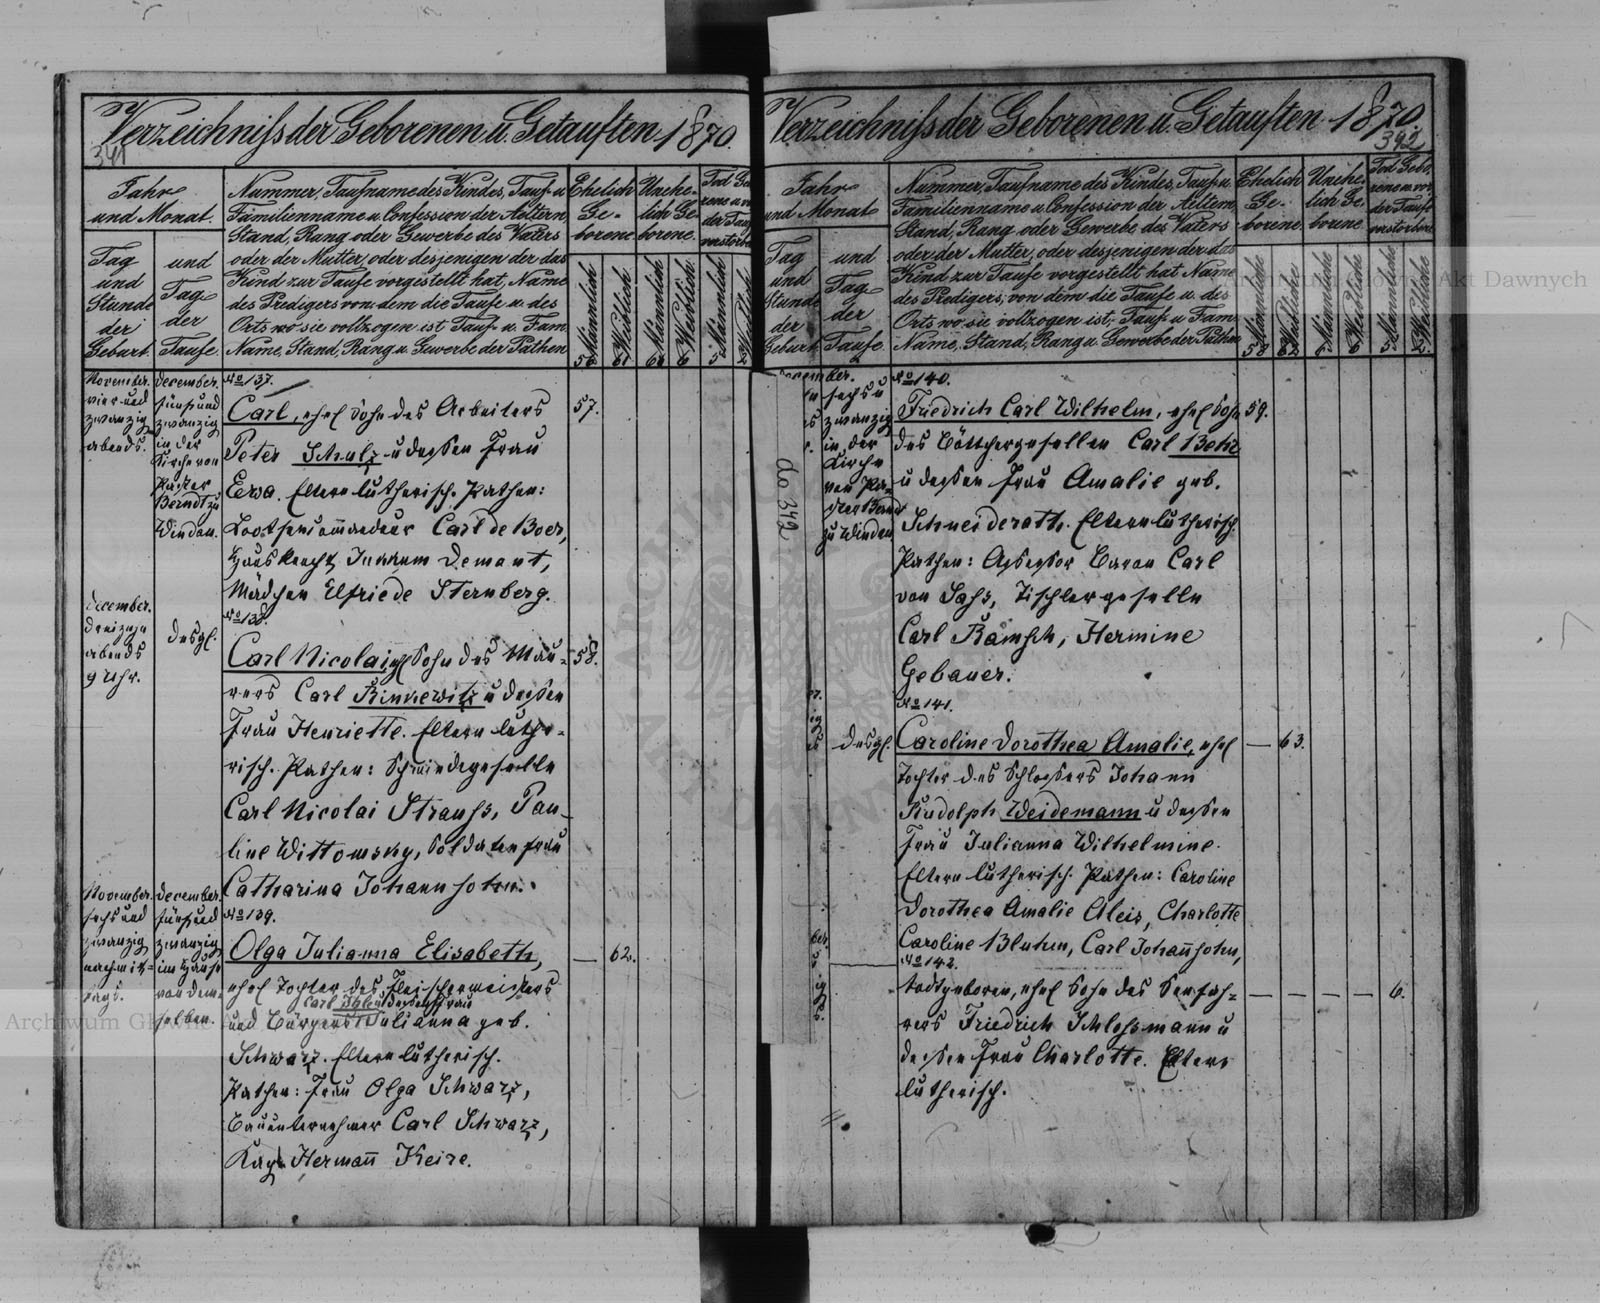 Verzeichniss der Geborenen u. Getauften 1870.
341
Jahr
und Monat.
Tag
und
Stunde
der
Geburt.
und
Tag
der
Taufe.
Nummer, Taufname des Kindes, Tauf- u.
Familienname u. Confession der Aeltern,
Stand, Rang oder Gewerbe des Vaters
oder der Mutter, oder desjenigen der das
Kind zur Taufe vorgestellt hat, Name
des Predigers von dem die Taufe u. des
Orts wo sie vollzogen ist, Tauf- u. Fam.
Name, Stand, Rang u. Gewerbe der Pathen
Ehelich
Ge-
borene.
Unehe-
lich Ge-
borene.
Tod Ge-
rene u. vor
der Tauf
verstorbe
Männlich
Weiblich
Männlich
Weiblich
Männlich
Weiblich
November.
vier und
zwanzig
abends.
December.
fünf und
zwanzig
in der
Kirche von
Pastor
Berndt zu
Windau.
No 137.
Carl, ehel Sohn des Arbeiters
57.
Peter Schulz u dessen Frau
Ewa. Eltern lutherisch. Pathen:
Lootsencommandeur Carl de Boer,
Hausknecht Demant,
Mädchen Elfriede Sternberg.
December.
dreizehn
abends
9 Uhr.
desgl.
No 138.
Carl Nicolai, ehel Sohn des Mau-
58.
rers Carl Binkewitz u dessen
Frau Henriette. Eltern luthe-
risch. Pathen: Schmiedegeselle
Carl Nicolai Strauss, Pau-
line Wittowsky, Soldatenfrau
Catharina Johannsohn.
November.
sechs und
zwanzig
nachmit-
tags.
December.
fünf und
zwanzig
im Hause
von dem-
selben.
No 139.
Olga Julianna Elisabeth,
— 62.
ehel Tochter des Fleischermeisters
Carl u dessen Frau
und Bürgers Julianna geb.
Schwarz. Eltern lutherisch.
Pathen: Frau Olga Schwarz,
Bauunternehmer Carl Schwarz,
Hermann Keire.
Verzeichniss der Geborenen u. Getauften 1870.
392
Jahr
und Monat
Tag
und
Stunde
der
Geburt.
und
Tag
der
Taufe.
Nummer, Taufname des Kindes, Tauf- u.
Familienname u. Confession der Aeltern,
Stand, Rang oder Gewerbe des Vaters
oder der Mutter, oder desjenigen der das
Kind zur Taufe vorgestellt hat, Name
des Predigers, von dem die Taufe u. des
Orts wo sie vollzogen ist, Tauf- u. Fam.
Name, Stand, Rang u. Gewerbe der Pathen
Ehelich
Ge-
borene.
Unehe-
lich Ge-
borene.
Tod Gebo-
rene u. vor
der Taufe
verstorbene
Männliche
Weibliche
Männliche
Weibliche
Männliche
Weibliche
58 62 6 5 2
do 342
sechs u
zwanzig
in der
Kirche
von Pa-
stor Berndt
zu Windau
No 140.
Friedrich Carl Wilhelm, ehel Sohn
59.
des Böttchergesellen Carl Behr
u dessen Frau Amalie geb.
Schneiderath. Eltern lutherisch.
Pathen: Assessor Baron Carl
von Sass, Tischlergeselle
Carl Ramsch, Hermine
Gebauer.
desgl.
No 141.
Caroline Dorothea Amalie, ehel
— 63.
Tochter des Schlossers Johann
Rudolph Weidemann u dessen
Frau Julianna Wilhelmine.
Eltern lutherisch. Pathen: Caroline
Dorothea Amalie Aleis, Charlotte
Caroline Bluhm, Carl Johannsohn,
No 142.
todtgeboren, ehel Sohn des Seefah-
— — — — 6.
rers Friedrich Schlossmann u
dessen Frau Charlotte. Eltern
lutherisch.
Archiwum Główne Akt Dawnych